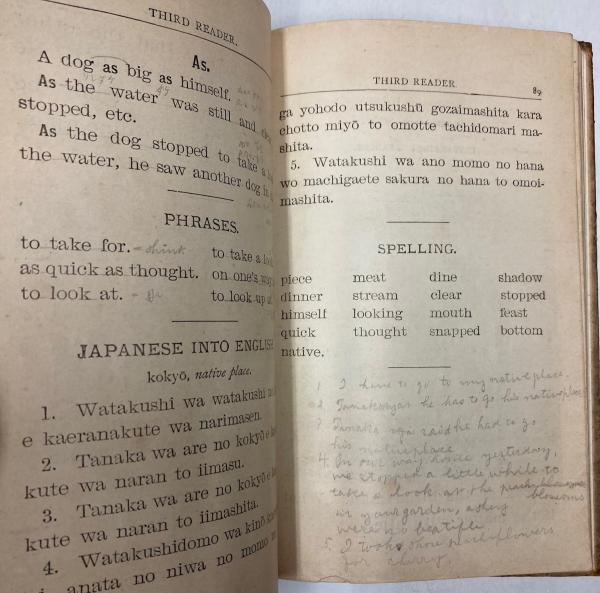 THIRD READER.
As.
A dog as big as himself.
As the water was still and
stopped, etc.
As the dog stopped to take a
the water, he saw another dog in
PHRASES.
to take for. to take a
as quick as thought. on one's way
to look at. to look up at
JAPANESE INTO ENGLISH
kokyō, native place.
1. Watakushi wa watakushi no
e kaeranakute wa narimasen.
2. Tanaka wa are no kokyō e
kute wa naran to iimasu.
3. Tanaka wa are no kokyō e
kute wa naran to iimashita.
4. Watakushidomo wa kinō
anata no niwa no momo no
THIRD READER. 89
ga yohodo utsukushū gozaimashita kara
chotto miyō to omotte tachidomari ma-
shita.
5. Watakushi wa ano momo no hana
wo machigaete sakura no hana to omoi-
mashita.
SPELLING.
piece meat dine shadow
dinner stream clear stopped
himself looking mouth feast
quick thought snapped bottom
native.
1 I have to go to my native place.
2 he has to go his native place
3 Tanaka said he had to go
his native place
4. On our way home yesterday,
we stopped a little while to
take a look at the peach blossoms
in your garden,
were so
5. I took those peach flowers
for cherry.